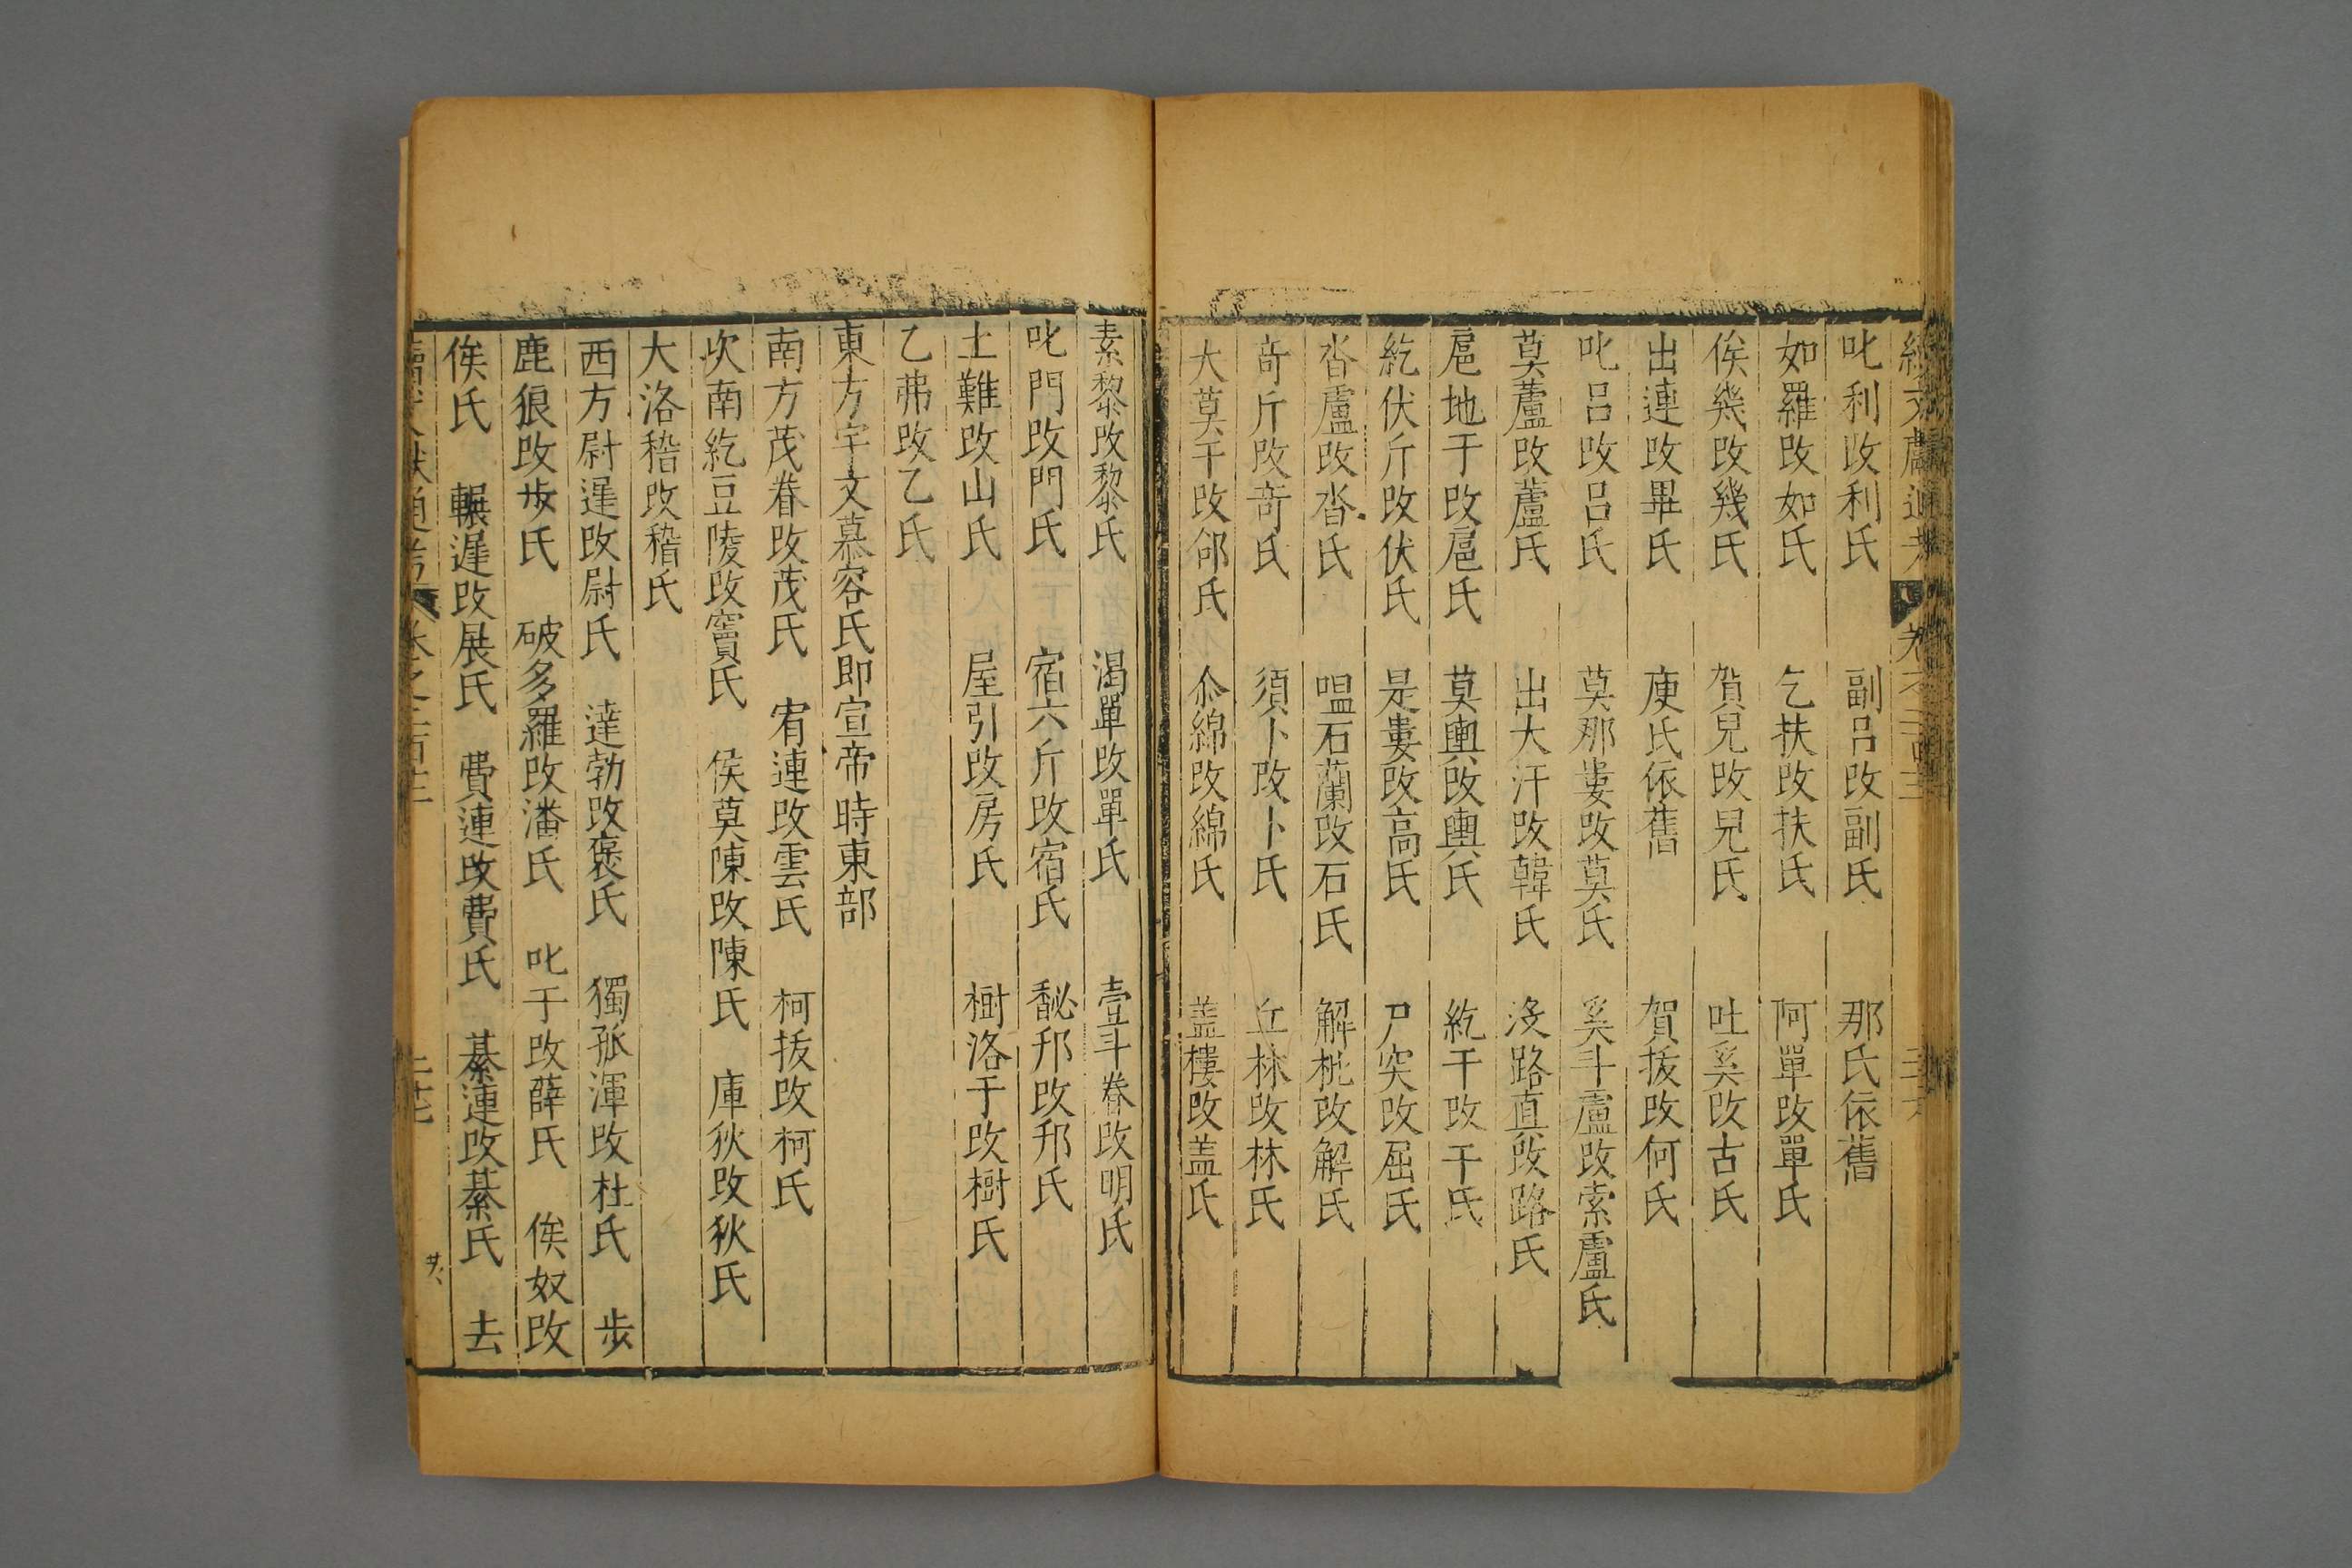 叱利改利氏　副呂改副氏　那氏依舊
如羅改如氏　乞扶改扶氏　阿單改單氏
俟幾改幾氏　賀兒改兒氏　吐奚改古氏
出連改畢氏　庾氏依舊　賀拔改何氏
叱呂改呂氏　莫那婁改莫氏　奚斗盧改索盧氏
莫蘆改蘆氏　出大汗改韓氏　沒路直改路氏
扈地于改扈氏　莫輿改輿氏　紇干改干氏
紇伏斤改伏氏　是婁改高氏　尸突改屈氏
沓盧改沓氏　嗢石蘭改石氏　解枇改解氏
奇斤改奇氏　須卜改卜氏　丘林改林氏
大莫干改郃氏　尒綿改綿氏　盖樓改盖氏
素黎改黎氏　渴單改單氏　壹斗眷改明氏
叱門改門氏　宿六斤改宿氏　馝邘改邘氏
土難改山氏　屋引改房氏　樹洛于改樹氏
乙弗改乙氏
東方宇文慕容氏即宣帝時東部
南方茂眷改茂氏　宥連改雲氏　柯拔改柯氏
次南紇豆陵改竇氏　侯莫陳改陳氏　庫狄改狄氏
大洛稽改稽氏
西方尉遲改尉氏　達勃改褒氏　獨孤渾改杜氏　步
鹿狼改步氏　破多羅改潘氏　叱于改薛氏　俟奴改
俟氏　輾遲改展氏　費連改費氏　綦連改綦氏　去